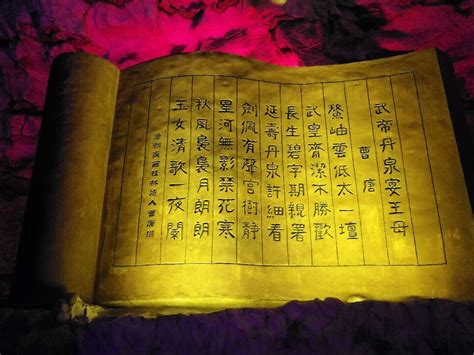 武帝丹泉宴王母
曹唐
鼇岫雲低太一壇
武皇齋潔不勝歡
長生碧字期親署
延壽丹泉許細看
劍佩有聲宮樹靜
星河無影禁花寒
秋風裊裊月朗朗
玉女清歌一夜闌
唐朝廣西桂林詩人曹唐撰